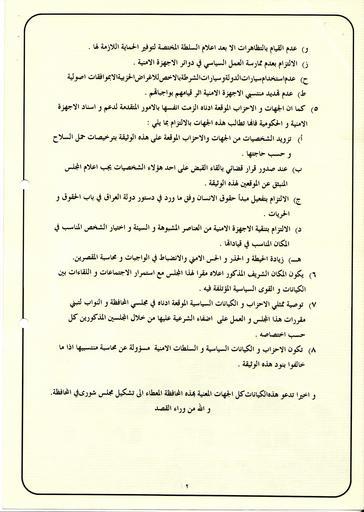 و) عدم القيام بالتظاهرات الا بعد اعلام السلطة المختصة لتوفير الحماية اللازمة لها .
ز) الالتزام بعدم ممارسة العمل السياسي في دوائر الاجهزة الامنية .
ح) عدم استخدام سيارات الدولة وسيارات الشرطة بالاخص للاغراض الحزبية الا بموافقات اصولية
ط) عدم تهديد منتسبي الاجهزة الامنية اثر قيامهم بواجباتهم .
٥) كما ان الجهات و الاحزاب الموقعة ادناه الزمت انفسها بالامور المتقدمة لدعم و اسناد الاجهزة
الامنية و الحكومية فانها تطالب هذه الجهات بالالتزام بما يلي :
أ) تزويد الشخصيات من الجهات والاحزاب الموقعة على هذه الوثيقة بترخيصات حمل السلاح
و حسب حاجتها .
ب) عند صدور قرار قضائي بالقاء القبض على احد هؤلاء الشخصيات يجب اعلام المجلس
المنبثق عن الموقعين لهذه الوثيقة .
ج) الالتزام بتفعيل مبدأ حقوق الانسان وفق ما ورد في دستور دولة العراق في باب الحقوق و
الحريات .
د) الالتزام بتنقية الاجهزة الامنية من العناصر المشبوهة و السيئة و اختيار الشخص المناسب في
المكان المناسب في قياداتها .
هـ) زيادة الحيطة و الحذر و الحس الامني والانضباط في الواجبات و محاسبة المقصرين.
٦) يكون المكان الشريف المذكور اعلاه مقرا لهذا المجلس مع استمرار الاجتماعات و اللقاءات بين
الكيانات و القوى السياسية المؤتلفة فيه .
٧) توصية ممثلي الاحزاب و الكيانات السياسية الموقعة ادناه في مجلسي المحافظة و النواب لتبني
مقررات هذا المجلس و العمل على اضفاء الشرعية عليها من خلال المجلسين المذكورين كل
حسب اختصاصه .
٨) تكون الاحزاب و الكيانات السياسية و السلطات الامنية مسؤولة عن محاسبة منتسبيها اذا ما
خالفوا بنود هذه الوثيقة .
و اخيرا تدعو هذه الكيانات كل الجهات المعنية بهذه المحافظة المعطاء الى تشكيل مجلس شورى في المحافظة.
و الله من وراء القصد
٢